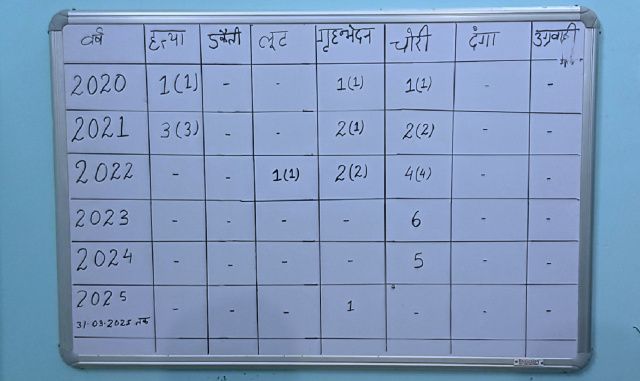 वर्ष हत्या डकैती लूट गृहभेदन चोरी दंगा उग्रवादी
2020 1(1) - - 1(1) 1(1) - -
2021 3(3) - - 2(1) 2(2) - -
2022 - - 1(1) 2(2) 4(4) - -
2023 - - - - 6 - -
2024 - - - - 5 - -
2025 - - - 1 - - -
31-03-2025 तक